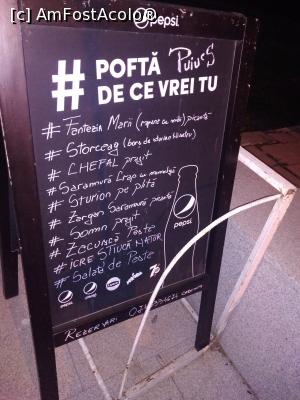 [c] AmFostAcolo®
pepsi
Puiu's
# POFTĂ
DE CE VREI TU
# Fantezia Mării (rapane cu midii) picantă
# Storceag (borș de sturion
# CHEFAL prăjit
# Saramură Crap cu mămăligă
# Sturion pe plită
# Zargan Saramură picantă
# Somn prăjit
# Zacuscă Pește
# ICRE ȘTIUCĂ NATUR
# Salată de Pește
pepsi
REZERVĂRI